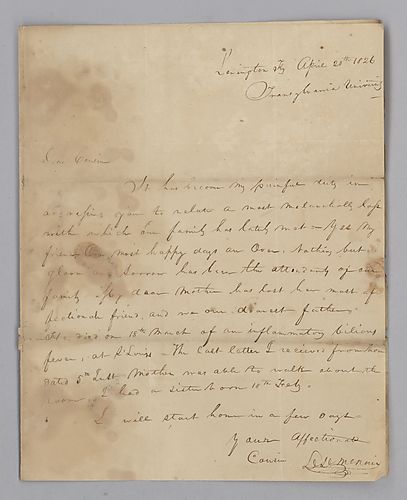 Lexington Ky April 20th 1826
Transylvania University
Dear Cousin
It has become my painful duty in
addressing you to relate a most melancholly loss
with which our family has lately met — Yes My
friend Our most happy days are Over. Nothing but
gloom and Sorrow has been the attendants of our
family. My dear Mother has lost her most af
fectionate friend, and we our dearest father.
He died on 18th March of an inflammatory bilious
fever, at St Louis — The Last letter I received from home
dated 5th Inst Mother was able to walk about the
room. I had a sister born 10th Feby.
I will start home in a few days
Your Affectionate
Cousin